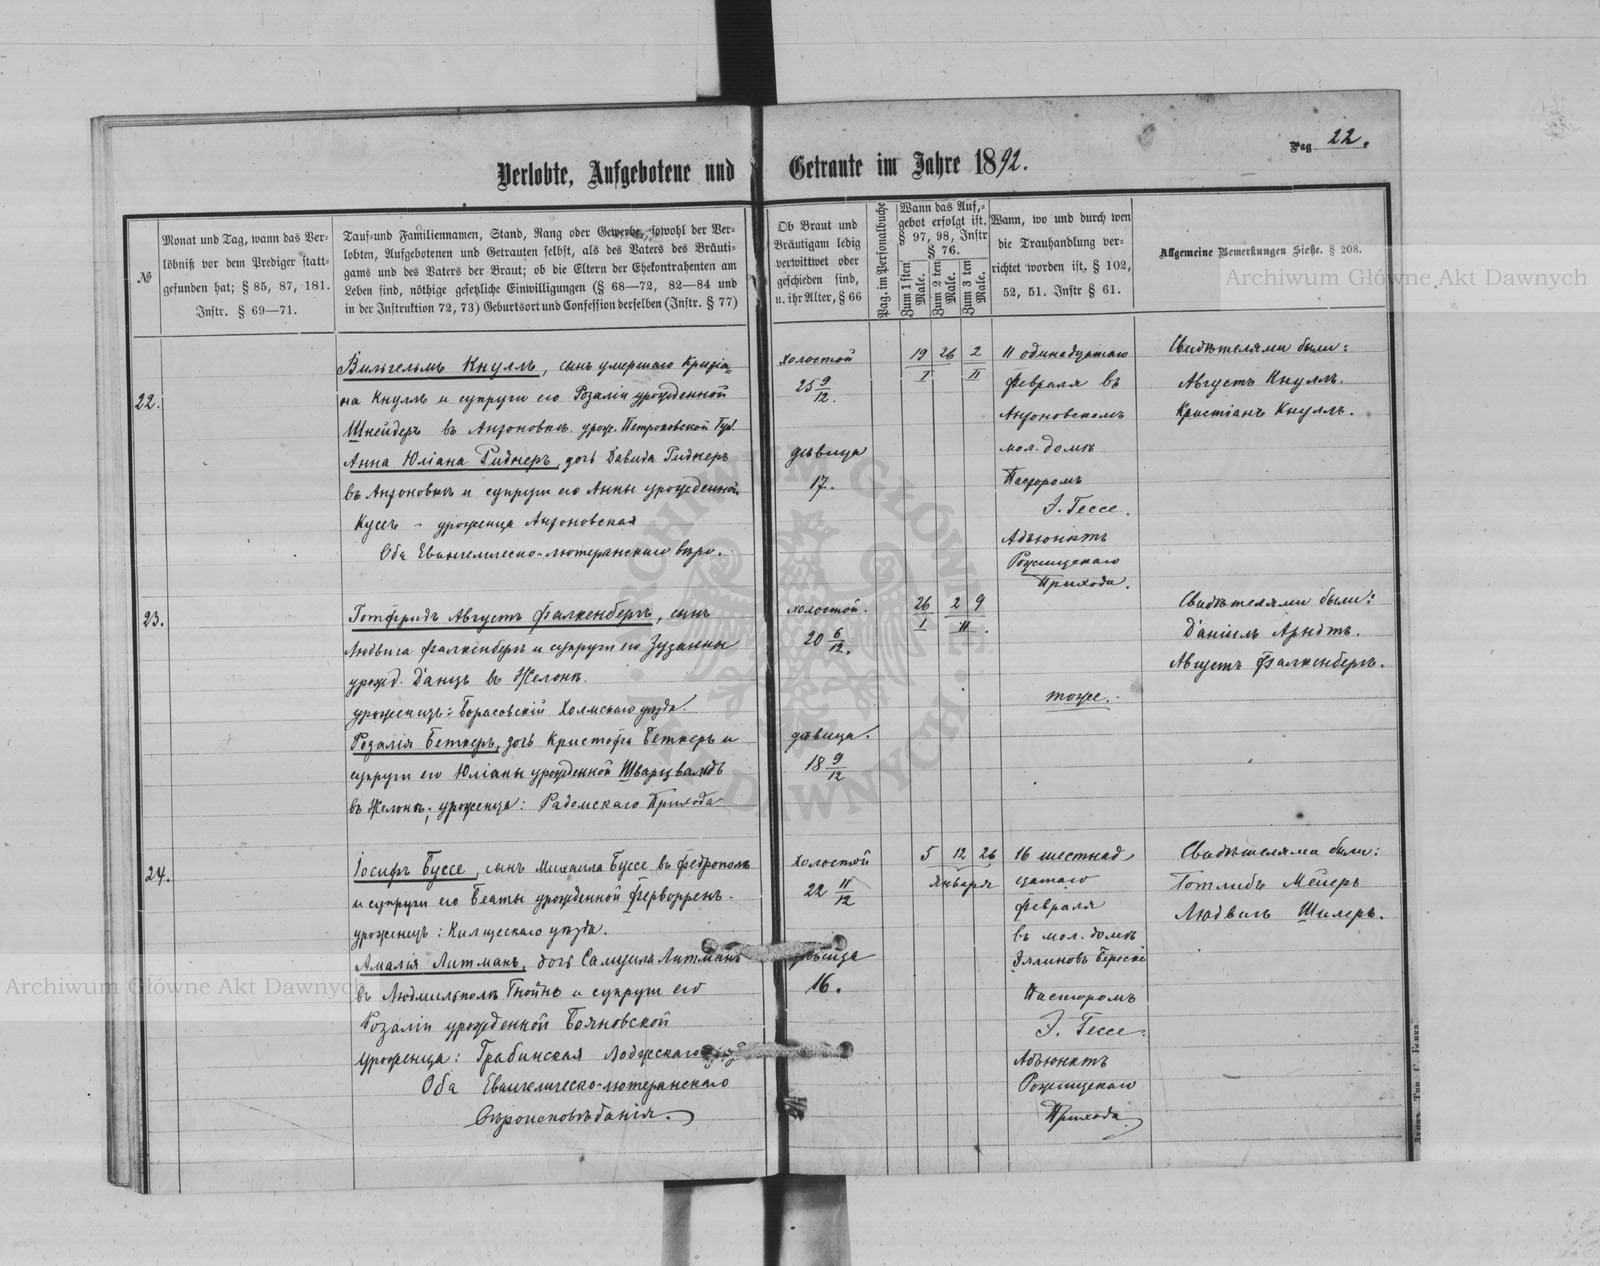 Pag 22.
Verlobte, Aufgebotene und Getraute im Jahre 1892.
№
Monat und Tag, wann das Ver-
löbniß vor dem Prediger statt-
gefunden hat; § 85, 87, 181.
Instr. § 69—71.
Tauf=und Familiennamen, Stand, Rang oder Gewerbe, sowohl der Ver-
lobten, Aufgebotenen und Getrauten selbst, als des Vaters des Bräuti-
gams und des Vaters der Braut; ob die Eltern der Ehekontrahenten am
Leben sind, nöthige gesetzliche Einwilligungen (§ 68—72, 82—84 und
in der Instruktion 72, 73) Geburtsort und Confession derselben (Instr. § 77)
Ob Braut und
Bräutigam ledig
verwittwet oder
geschieden sind,
u. ihr Alter, § 66
Pag. im Personalbuche
Wann das Auf=
gebot erfolgt ist.
§ 97, 98, Instr
§ 76.
Zum 1sten Male.
Zum 2 ten Male.
Zum 3 ten Male.
Wann, wo und durch wen
die Trauhandlung ver-
richtet worden ist, § 102,
52, 51. Instr § 61.
Allgemeine Bemerkungen Siehe. § 208.
Archiwum Główne Akt Dawnych
22.
Вильгельмъ Кнулль, сынъ умершаго Кристіа-
на Кнулль и супруги его Розаліи урожденной
Шнейдеръ въ Антоновкѣ. урож. Петроковской Губ.
Анна Юліана Гиднеръ, дочь Давида Гиднеръ
въ Антоновкѣ и супруги его Анны урожденной
Кусъ - уроженца Антоновская
Оба Евангелическо-лютеранскаго вѣро.
холостой
25 9/12.
дѣвица
17.
19 26 2
I II
11 одинадцатаго
февраля въ
Антоновскомъ
мол. домѣ
Пасторомъ
Э. Гессе.
Адъюнктъ
Рожищскаго
Прихода.
Свидѣтелями были:
Августъ Кнулль.
Кристіанъ Кнулль.
23.
Готфридъ Августъ Фалкенбергъ, сынъ
Людвига Фалкенбергъ и супруги его Зузанны
урожд. Данцъ въ Желонѣ.
уроженецъ: Борисовскій Холмскаго уѣзда.
Розалія Беткеръ, дочь Кристофа Беткеръ и
супруги его Юліаны урожденной Шварцвальдъ
въ Желонѣ; уроженца: Радомскаго Прихода
холостой.
20 6/12.
дѣвица.
18 9/12
26 2 9
I II.
тоже.
Свидѣтелями были:
Даніилъ Арндтъ.
Августъ Фалкенбергъ.
24.
Іосифъ Буссе, сынъ Михаила Буссе въ Федрополѣ
и супруги его Беаты урожденной Ферворренъ.
уроженецъ: Калишскаго уѣзда.
Амалія Литманъ, дочь Самуила Литманъ
въ Людмильполѣ Гнойнѣ и супруги его
Розаліи урожденной Бояновской
Уроженца: Грабинская Лодзскаго
Оба Евангелическо-лютеранскаго
Вѣроисповѣданія.
Холостой
22 11/12
дѣвица
16.
5 12 26
Января
16 шестнад
цатаго
февраля
въ мол. домѣ
Пасторомъ
Э. Гессе.
Адъюнктъ
Рожищскаго
Прихода.
Свидѣтелями были:
Готлибъ Мейеръ
Людвигъ Шилеръ.
Archiwum Główne Akt Dawnych